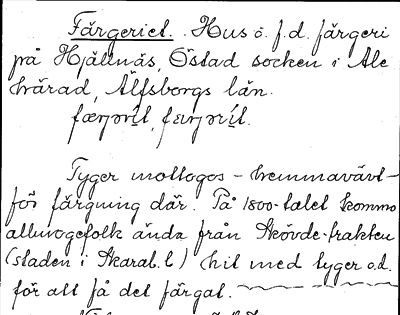 Färgeriet. Hus o. f.d. färgeri
på Hjällnäs, Östad socken i Ale
härad, Älfsborgs län.
Tyger mottogos – hemmavävt –
för färgning där. På 1800-talet kommo
allmogefolk ända från Skövde-trakten
(staden i Skarab. l) hit med tyger o.d.
för att få det färgat.